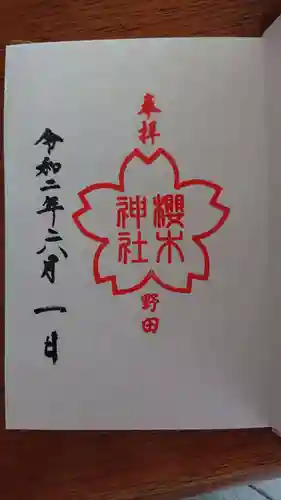 奉拝
櫻木
神社
野田
令和二年二八月一日